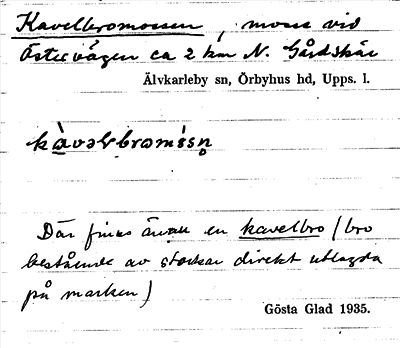 Kavelbromossen, mosse vid
Östervägen ca 2 km N. Gårdskär
Älvkarleby sn, Örbyhus hd, Upps. l.
Där finns ännu en kavelbro (bro
bestående av stockar direkt utlagda
på marken)
Gösta Glad 1935.